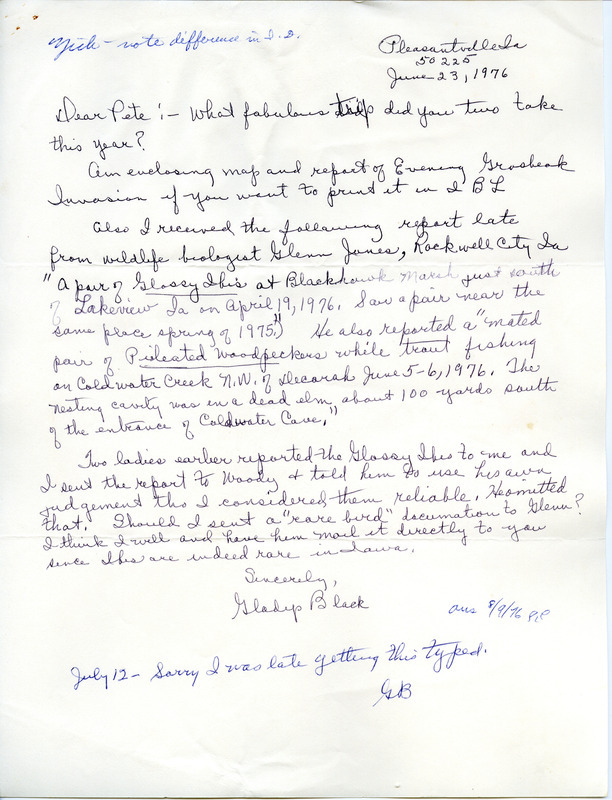 note difference in I.D.
Pleasantville Ia
50225
June 23, 1976
Dear Pete :- What fabulous trip did you two take
this year?
Am enclosing map and report of Evening Grosbeak
Invasion if you want to print it in I B L
Also I received the following report late
from wildlife biologist Glenn Jones, Rockwell City Ia
"A pair of Glossy Ibis at Blackhawk Marsh just south
of Lakeview Ia on April 19, 1976. Saw a pair near the
same place spring of 1975." He also reported a "mated
pair of Pileated Woodpeckers while trout fishing
on Coldwater Creek N.W. of Decorah June 5-6, 1976. The
nesting cavity was in a dead elm about 100 yards south
of the entrance of Coldwater Cave."
Two ladies earlier reported the Glossy Ibis to me and
I sent the report to Woody & told him to use his own
judgement tho I considered them reliable. He omitted
that. Should I sent a "rare bird" documation to Glenn?
I think I will and have him mail it directly to you
since Ibis are indeed rare in Iowa.
Sincerely,
Gladys Black
ans 8/9/76 P.P
July 12 - Sorry I was late getting this typed.
GB